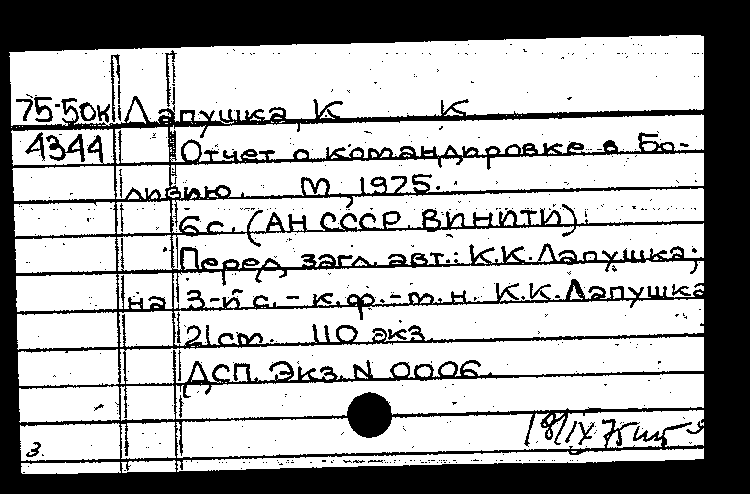 75-50к Лапушка, К К
4344 Отчет о командировке в Бо-
ливию. М, 1975.
6с. (АН СССР. ВИНИТИ).
Перед загл. авт.: К.К.Лапушка;
на 3-й с. - к.ф.-м.н. К.К.Лапушка
21см. 110 экз.
ДСП. Экз. N 0006.
18/IX 75
3.